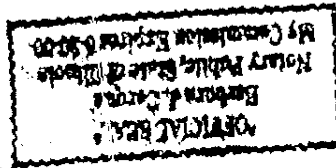 "OFFICIAL SEAL"
Barbara J.
Notary Public, State of Illinois
My Commission Expires